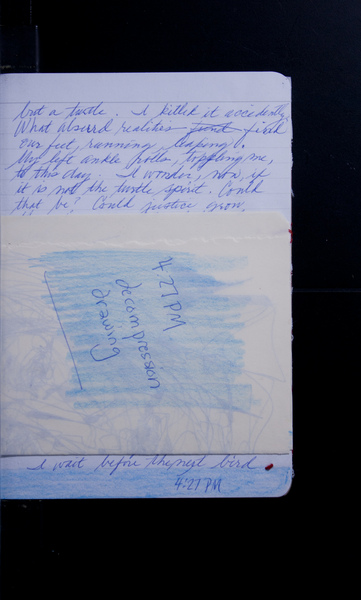 but a turtle. I killed it accidently.
What absurd realities find
our feet, running, leaping.
My left ankle rolls, toppling me,
to this day. I wonder, now, if
it is not the turtle spirit. Could
that be? Could justice grow,
4:27 PM
decompression
Drawing
I wait before the next bird
4:27 PM